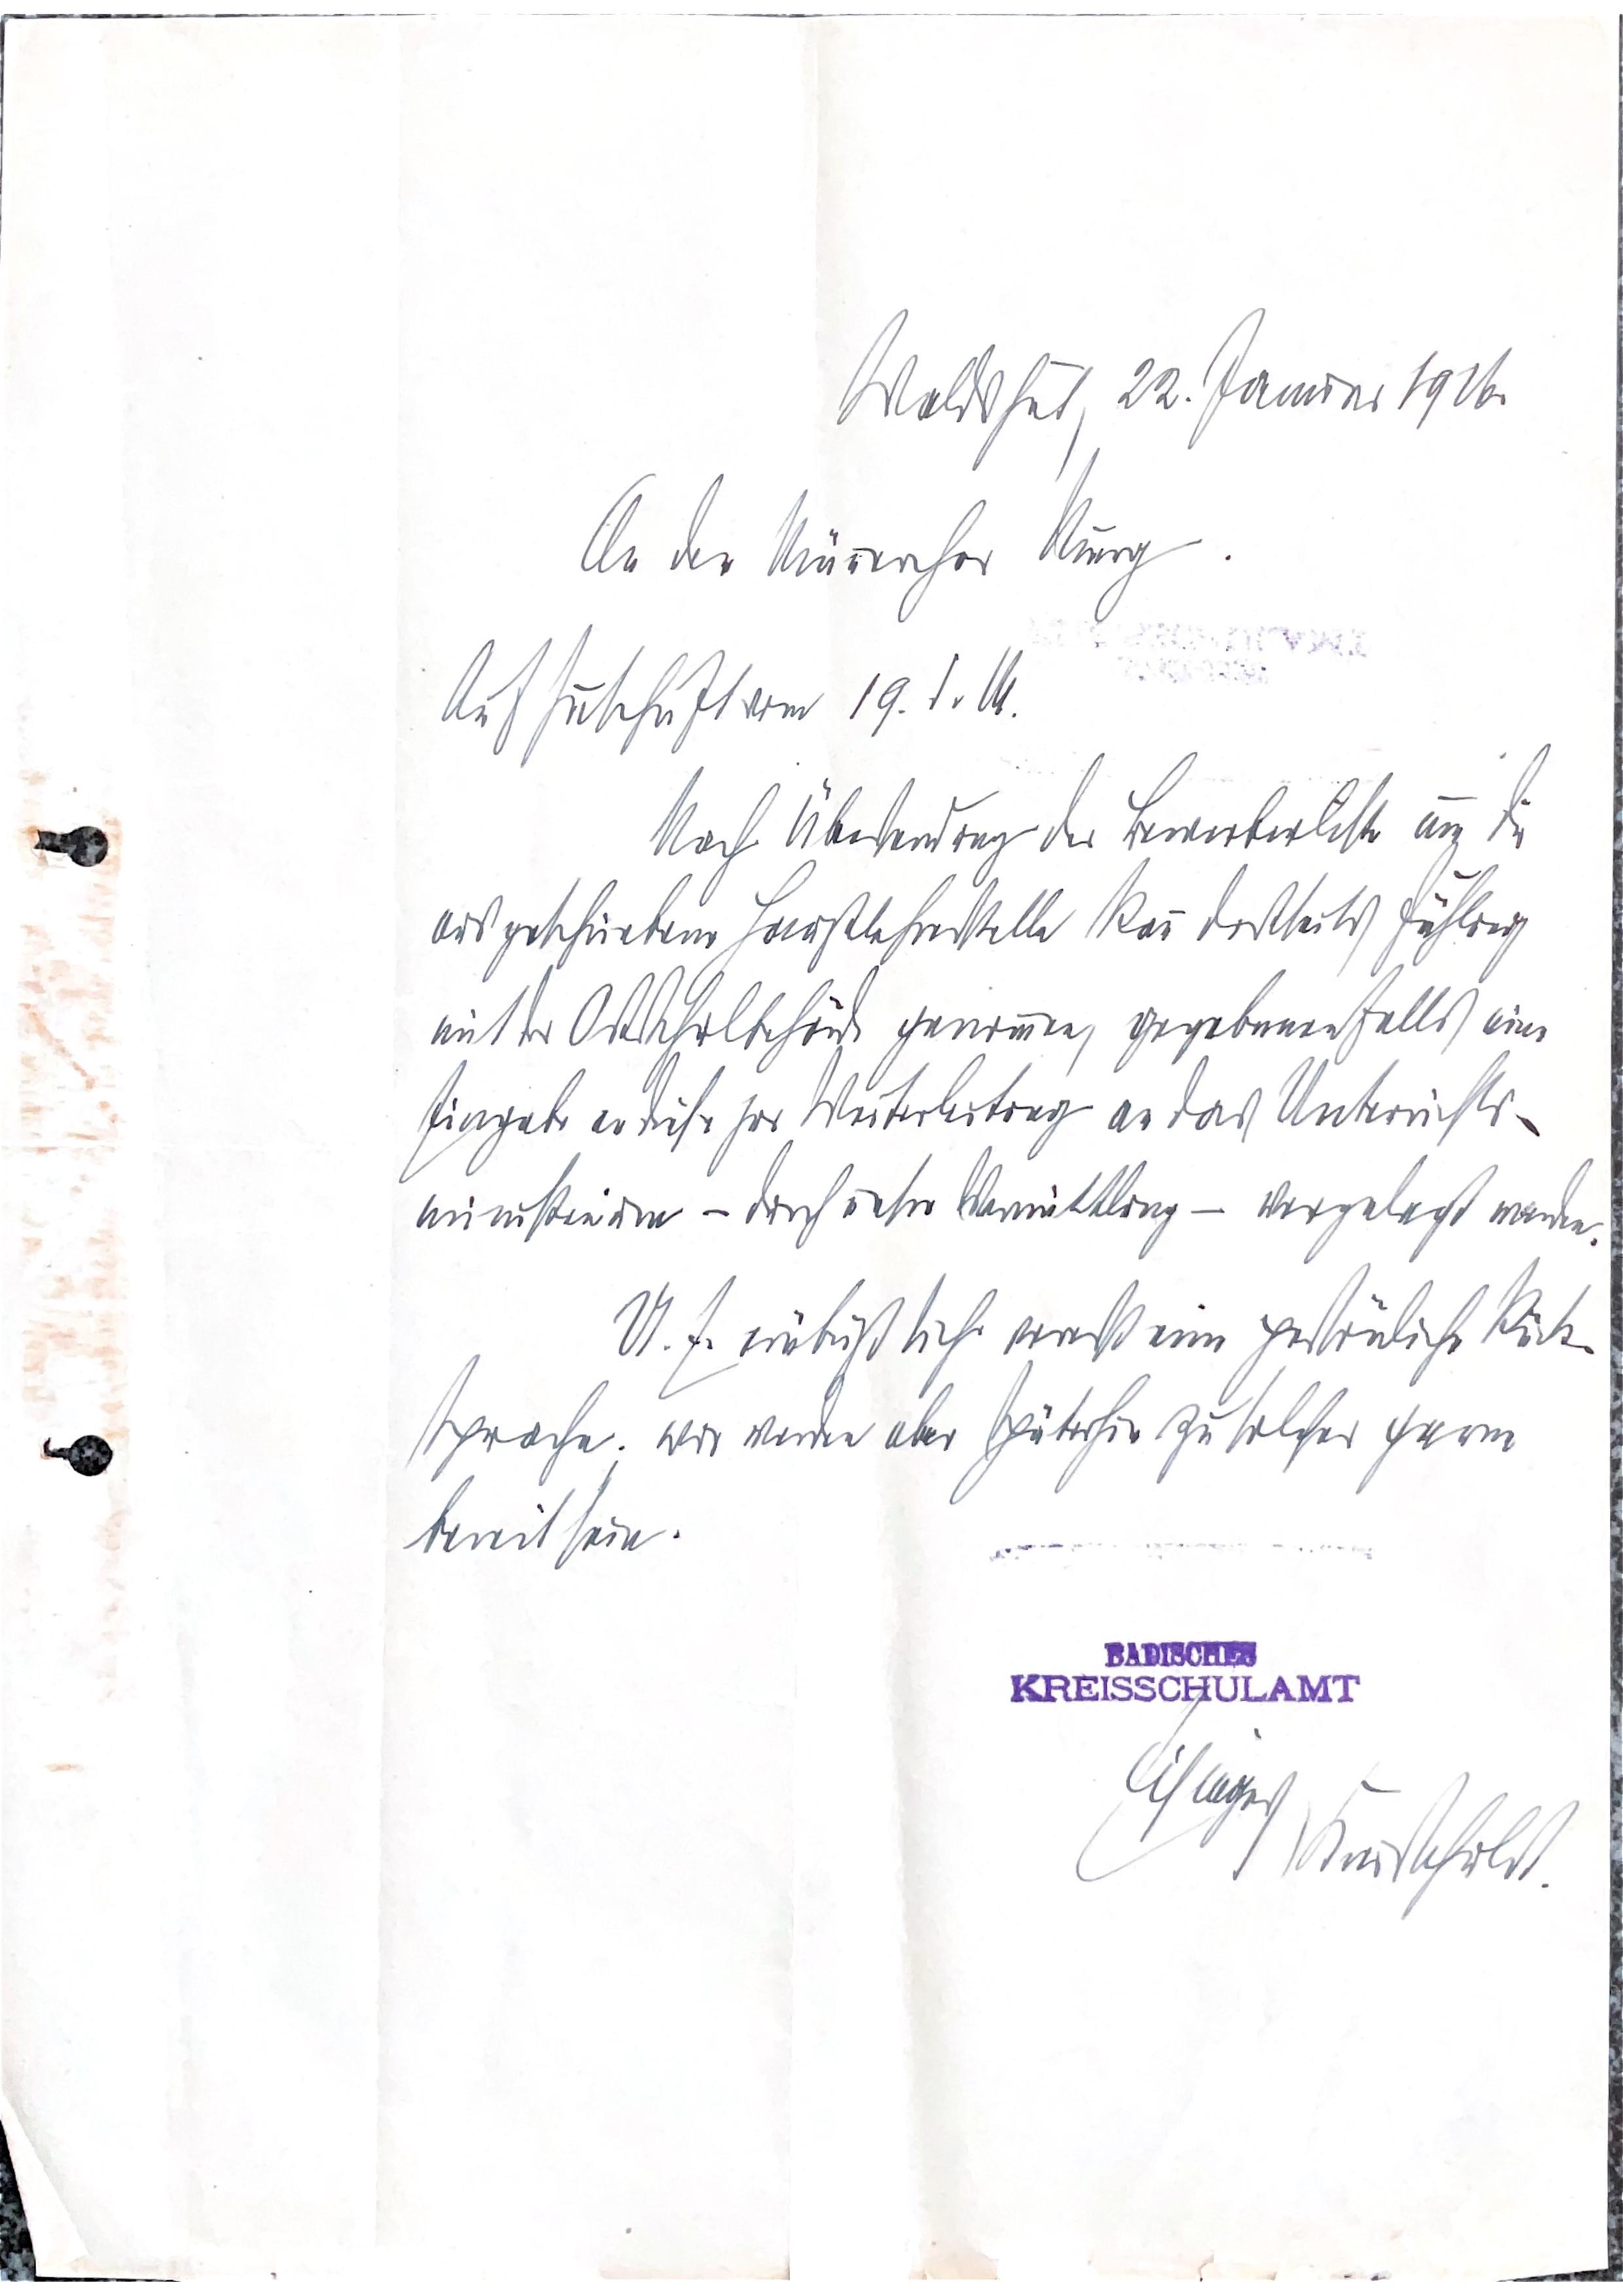 Waldshut, 22. Januar 1926.
An den Männerchor Murg.
Auf Zuschrift vom 19. d. M.
Nach Übersendung der Bewerberliste um die
ausgeschriebene Hauptlehrerstelle kann dortseits Fühlung
mit der Ortsschulbehörde genommen, gegebenenfalls eine
Eingabe an diese zur Weiterleitung an das Unterrichts-
ministerium – durch unsere Vermittlung – vorgelegt werden.
U. E. erübrigt sich vorerst eine persönliche Rück-
sprache; wir werden aber späterhin zu solcher gerne
bereit sein.
BADISCHES
KREISSCHULAMT
Kreisschulrat.